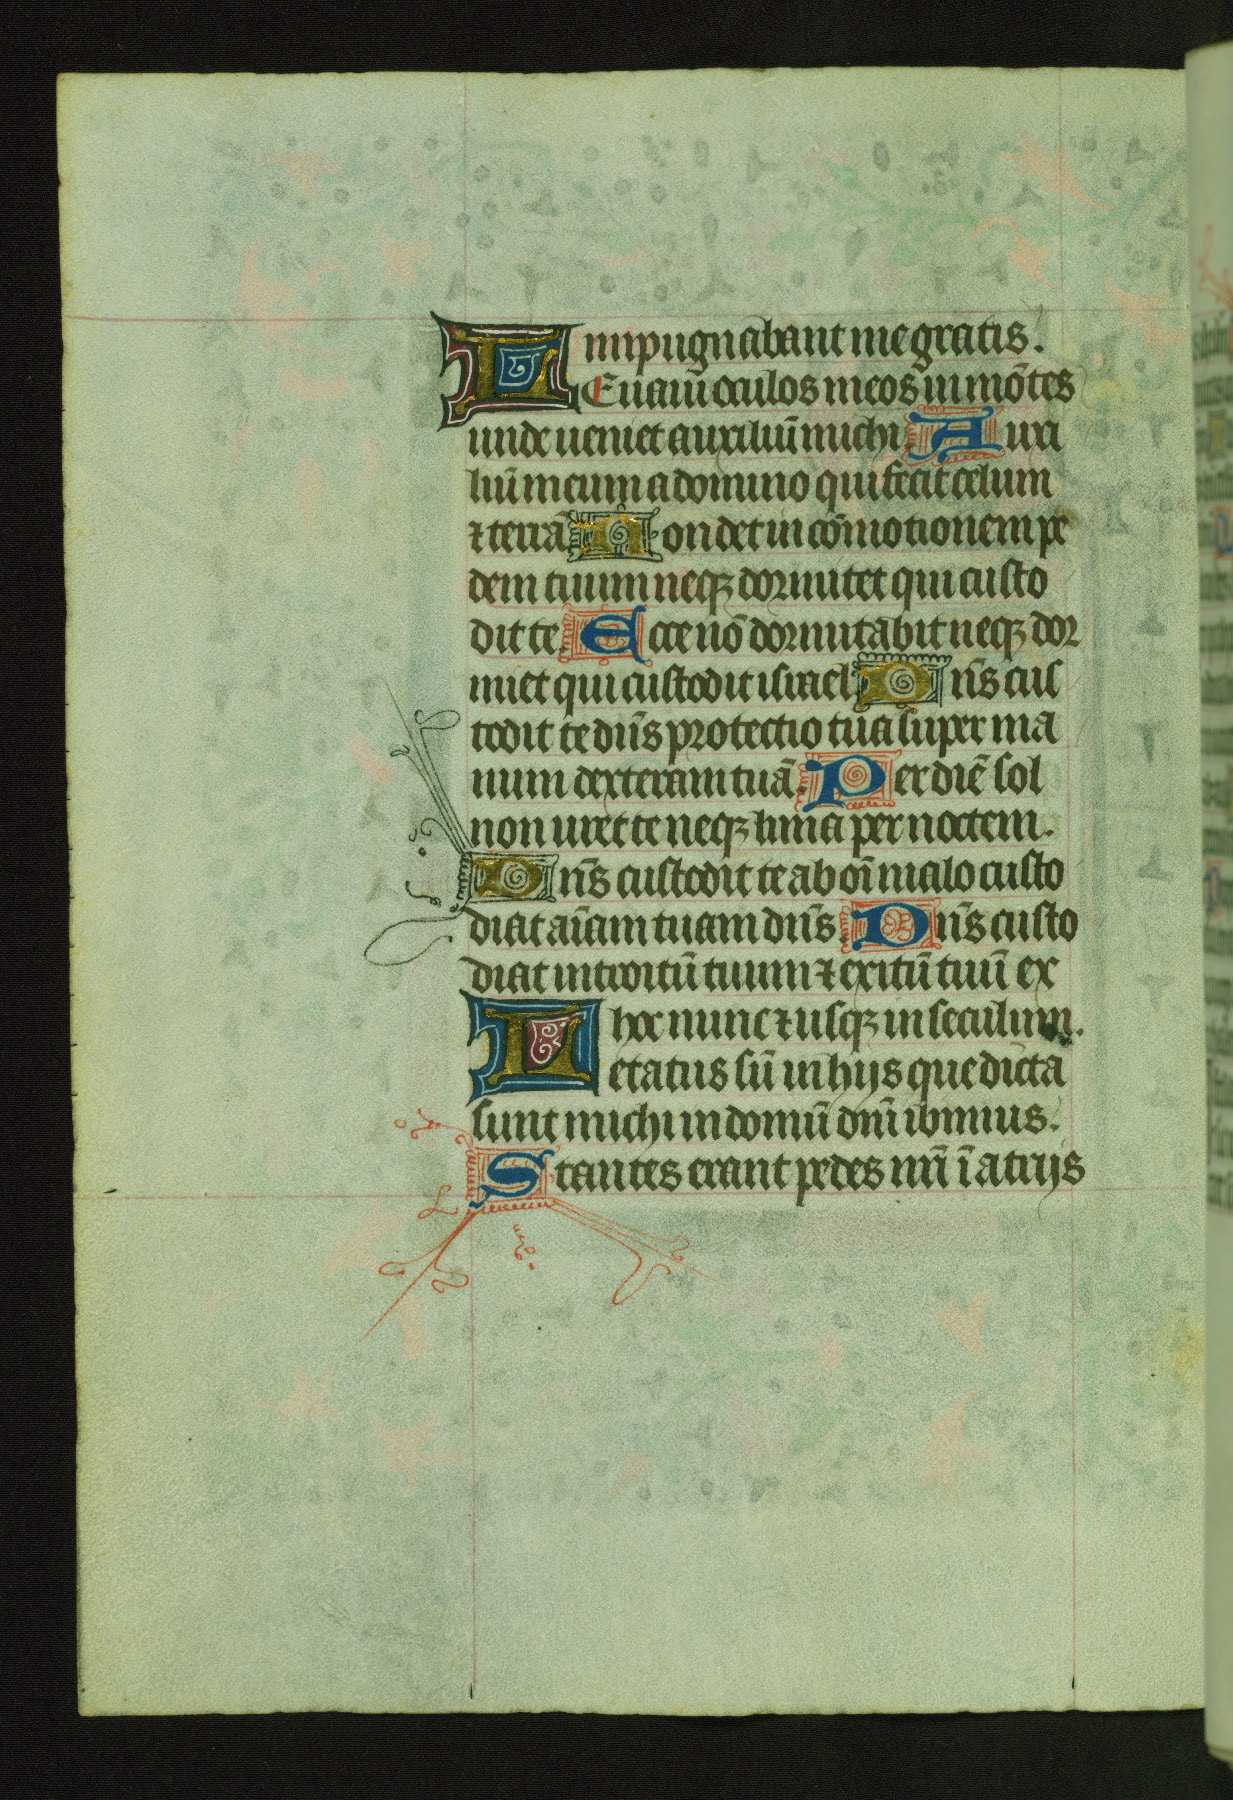 impugnabant me gratis.
LEuaui oculos meos in mōtes
unde ueniet auxiliū michi. Auxi
liū meum a domino qui fecit celum
⁊ terrā. Non det in cōmotionem pe
dem tuum neqꝫ dormitet qui custo
dit te. Ecce nō dormitabit neqꝫ dor
miet qui custodit israel. Dn̄s cus
todit te dn̄s protectio tua super ma
num dexteram tuā. Per diē sol
non uret te neqꝫ luna per noctem.
Dn̄s custodit te ab oī malo custo
diat aīam tuam dn̄s. Dn̄s custo
diat introitū tuum ⁊ exitū tuū ex
hoc nunc ⁊ usqꝫ in seculum.
Letatus sū in hijs que dicta
sunt michi in domū dnī ibimus.
Stantes erant pedes nrī ī atrijs